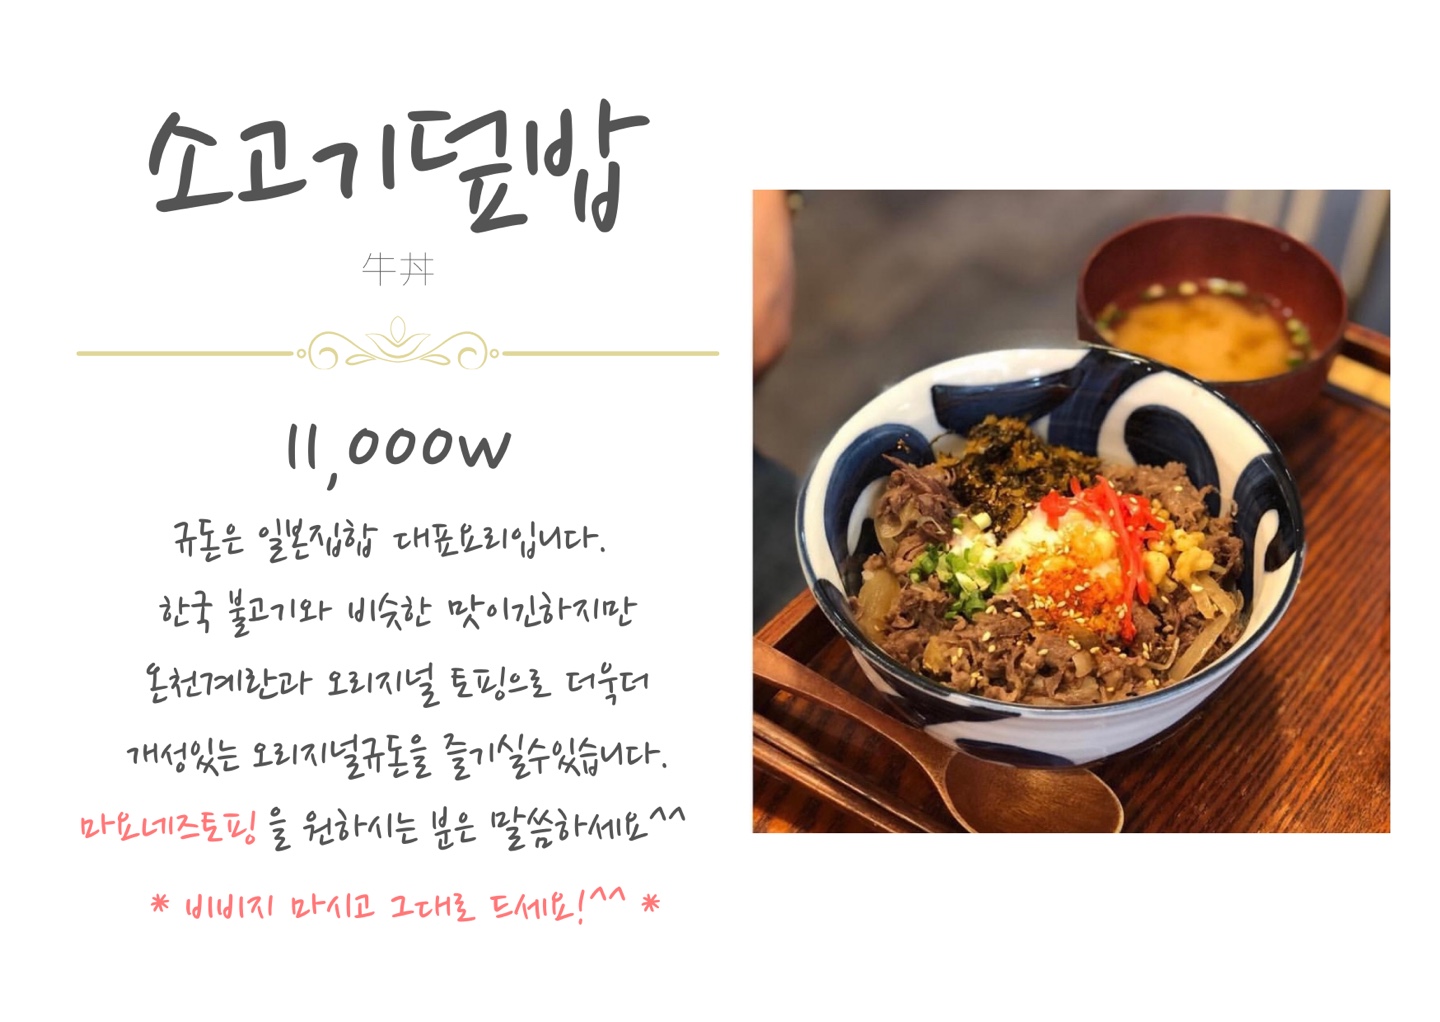 소고기덮밥
牛丼
11,000w
규돈은 일본집합 대표요리입니다.
한국 불고기와 비슷한 맛이긴하지만
온천계란과 오리지널 토핑으로 더욱더
개성있는 오리지널규돈을 즐기실수있습니다.
마요네즈토핑 을 원하시는 분은 말씀하세요^^
* 비비지 마시고 그대로 드세요!^^ *